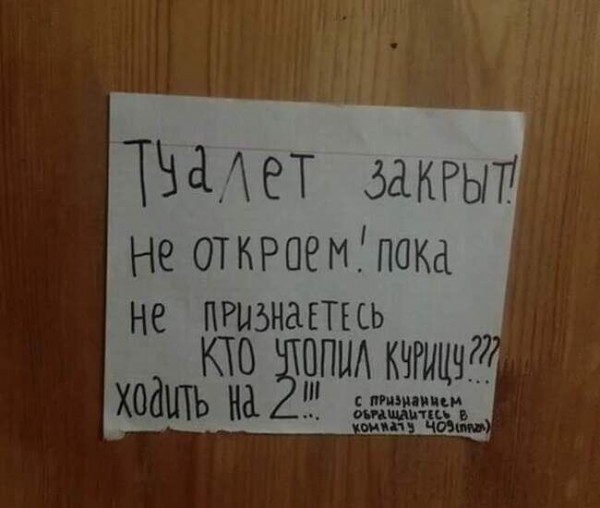 Туалет закрыт!
Не откроем! пока
не признаетесь
кто утопил курицу???
ходить на 2!!!
с признанием
обращайтесь в
комнату 409